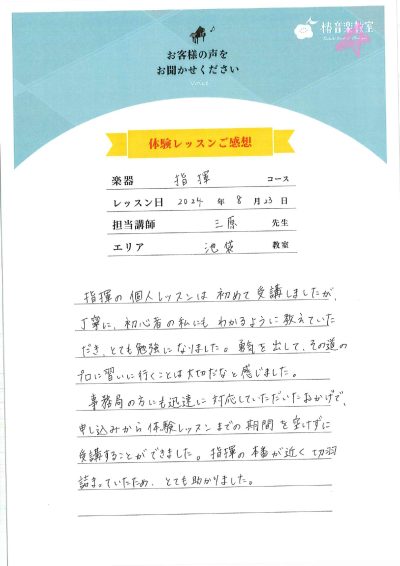 椿音楽教室
お客様の声を
お聞かせください
VOICE
体験レッスンご感想
楽器 指揮 コース
レッスン日 2024 年 8 月 23 日
担当講師 三原 先生
エリア 池袋 教室
指揮の個人レッスンは初めて受講しましたが、
丁寧に、初心者の私にもわかるように教えていた
だき、とても勉強になりました。勇気を出して、その道の
プロに習いに行くことは大切だなと感じました。
事務局の方にも迅速に対応していただいたおかげで、
申し込みから体験レッスンまでの期間を空けずに
受講することができました。指揮の本番が近く切羽
詰まっていたため、とても助かりました。